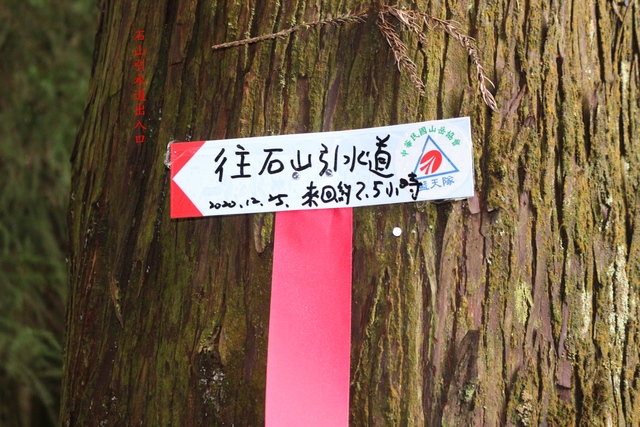 石山引水道出入口
往石山引水道
2020.12.25. 來回約2.5小時
中華民國山岳協會
藍天隊